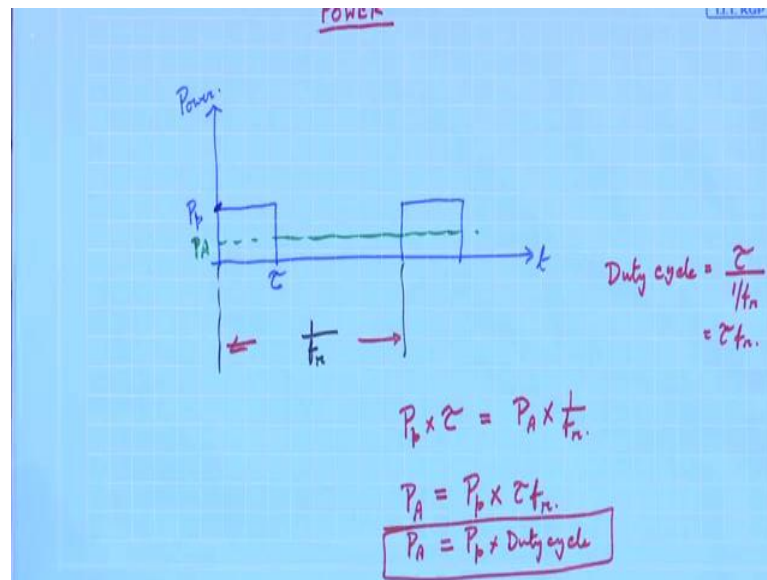 POWER
I.I.T. KGP
Power.
Pₚ
P_A
τ
t
1/fₙ
Duty cycle = τ / (1/fₙ)
= τ fₙ.
Pₚ × τ = P_A × 1/fₙ.
P_A = Pₚ × τ fₙ.
P_A = Pₚ × Duty cycle